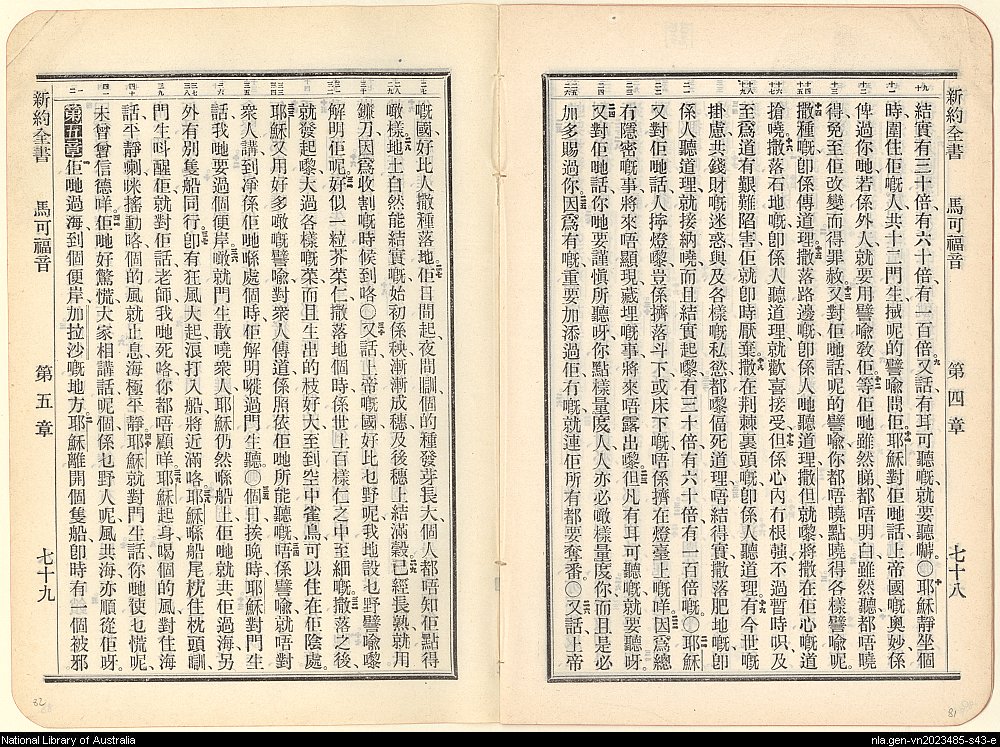 新約全書 馬可福音 第四章 七十八
結實有三十倍有六十倍有一百倍又話有耳可聽嘅就要聽嚹〇耶穌靜坐個
時圍住佢嘅人共十二門生搣呢的譬喻問佢耶穌對佢哋話上帝國嘅奧妙係
俾過你哋若係外人就要用譬喻敎佢等佢哋雖然睇都唔明白雖然聽都唔曉
得免至佢改變而得罪赦又對佢哋話呢的譬喻你都唔曉點曉得各樣譬喻呢
撒種嘅卽係傳道理撒落路邊嘅卽係人哋聽道理撒但就嚟將撒在佢心嘅道
搶嘵撒落石地嘅卽係人聽道理就歡喜接受但係心內冇根𢬿不過暫時啫及
至爲道有艱難陷害佢就卽時厭棄撒在荆棘裏頭嘅卽係人聽道理有今世嘅
掛慮共錢財嘅迷惑與及各樣嘅私慾都嚟偪死道理唔結得實撒落肥地嘅卽
係人聽道理就接納嘵而且結實起嚟有三十倍有六十倍有一百倍嘅〇耶穌
又對佢哋話人擰燈嚟豈係擠落斗下或床下嘅唔係擠在燈臺上嘅咩因爲總
冇隱密嘅事將來唔顯現藏埋嘅事將來唔露出嚟但凡有耳可聽嘅就要聽呀
又對佢哋話你哋要謹愼所聽呀你點樣量度人人亦必噉樣量度你而且是必
加多賜過你因爲有嘅重要加添過佢冇嘅就連佢所有都要奪番〇又話上帝
嘅國好比人撒種落地佢日間起夜間瞓個的種發芽長大個人都唔知佢點得
噉樣地土自然能結實嘅始初係秧漸漸成穗及後穗上結滿穀已經長熟就用
鐮刀因爲收割嘅時候到咯〇又話上帝嘅國好比乜野呢我地設乜野譬喻嚟
解明佢呢好似一粒芥菜仁撒落地個時係世上百樣仁之中至細嘅撒落之後
就發起嚟大過各樣嘅菜而且生出的枝好大至到空中雀鳥可以住在佢陰處
耶穌又用好多噉嘅譬喻對衆人傳道係照依佢哋所能聽嘅唔係譬喻就唔對
衆人講到凈係佢哋喺處個時佢解明嚟過門生聽〇個日挨晚時耶穌對門生
話我哋要過個便岸噉就門生散嘵衆人耶穌仍然喺船上佢哋就共佢過海另
外有別隻船同行卽有狂風大起浪打入船將近滿咯耶穌喺船尾枕住枕頭瞓
門生呌醒佢就對佢話老師我哋死咯你都唔顧咩耶穌起身喝個的風對住海
話平靜喇咪搖動咯個的風就止息海極平靜耶穌就對門生話你哋使乜慌呢
未曾曾信德咩佢哋好驚慌大家相講話呢個係乜野人呢風共海亦順從佢呀
第五章佢哋過海到個便岸加拉沙嘅地方耶穌離開個隻船卽時有一個被邪
新約全書 馬可福音 第五章 七十九
82
81
National Library of Australia
nla.gen-vn2023485-s43-e